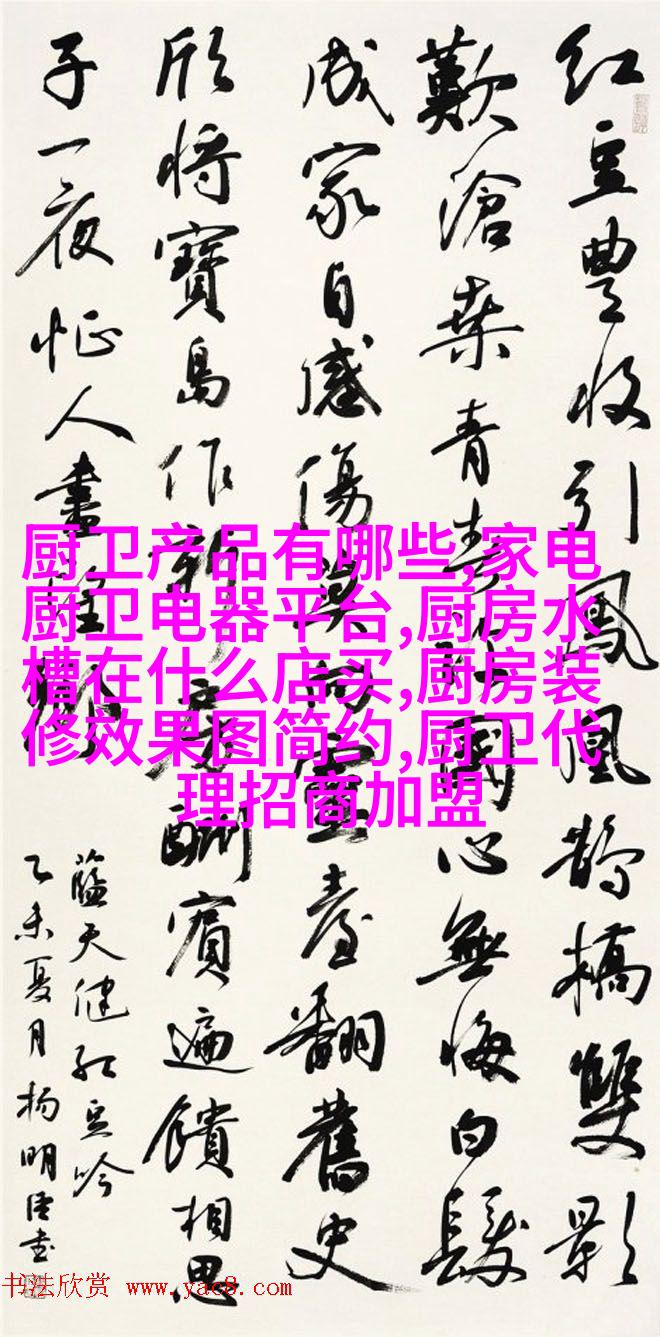 红豆豊收引鳳凰鹊橋雙影
歎滄桒青春許國心無悔白髮
成家自感傷莫向靈臺翻舊史
欣將寶島作新房酬賓遍饋相思
子一夜忙人畫
蓝天健红豆吟
乙未夏月杨明臣书
厨卫产品有哪些,家电
厨卫电器平台,厨房水
槽在什么店买,厨房装
修效果图简约,厨卫代
理招商加盟
书法欣赏 www.yac8.com